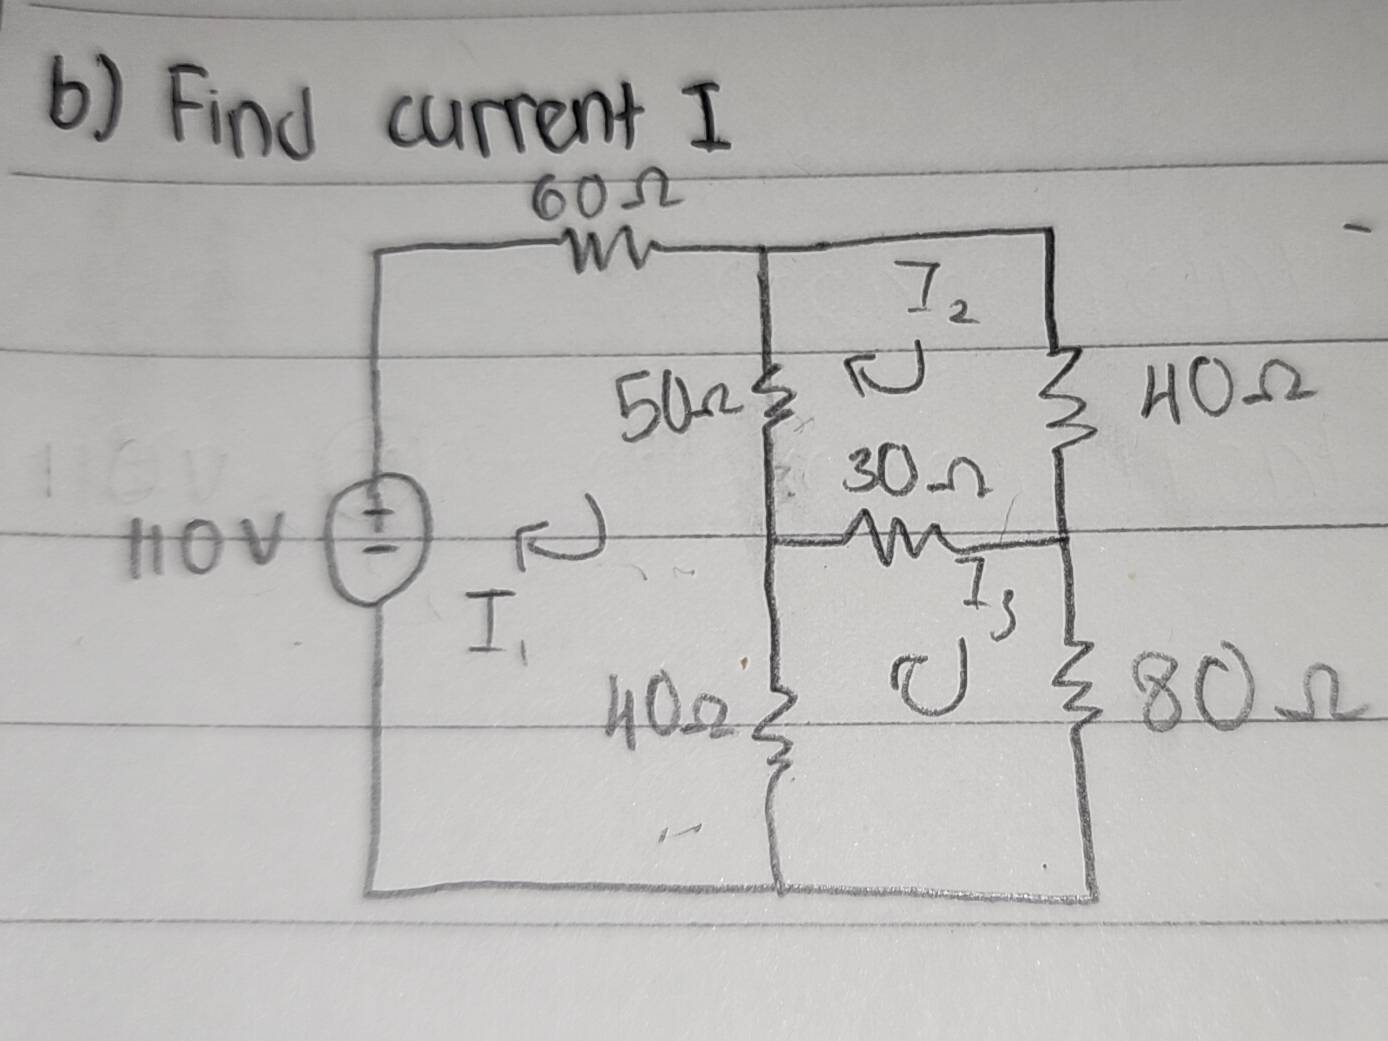 b) Find current I
60Ω
I₂
50Ω
40Ω
30Ω
110V
+
−
I₁
I₃
40Ω
80Ω